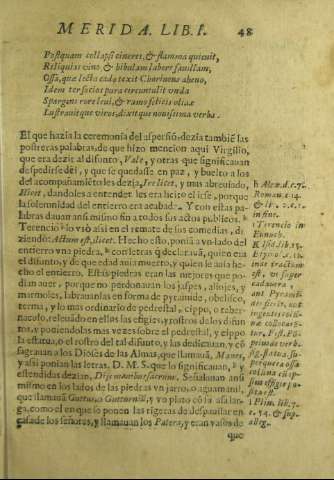 MERIDA. LIB. I. 48
Postquam collapsi cineres, & flamma quieuit,
Reliquias vino & bibulam lauere fauillam,
Ossaq; lecta cado texit Chorineus aheno,
Idem ter socios pura circuntulit vnda
Spargens rore leui, & ramo felicis oliuæ
Lustrauitque viros, dixitque nouissima verba.
El que hazia la ceremonia del aspersiõ, dezia tambiẽ las
postreras palabras, de que hizo mencion aqui Virgilio,
que era dezir al difunto, Vale, y otras que significauan
despedirse dẽl, y que se quedasse en paz, y buelto a los
del acompañamiẽto les dezia, Ire licet, y mas abreuiado,
Ilicet, dandoles a entender les era licito el irse, porque
la solemnidad del entierro era acabada. Y con estas pa-
labras dauan ansimismo fin a todos sus actos publicos.
Terencio lo vsò assi en el remate de sus comedias, di
ziendo: Actum est, ilicet. Hecho esto, ponia a vn lado del
entierro vna piedra, con letras q̃ declarauã, quien era
el difunto, y de que edad auia muerto, y quien le auia he
cho el entierro. Estas piedras eran las mejores que po-
dian auer, porque no perdonauan los jaspes, aliojes, y
marmoles, labrauanlas en forma de pyramide, obelisco,
terma, y lo mas ordinario de pedrestal, cippo, o taber-
naculo, releuãdo en ellas las efigies, y rostros de los difun
tos, y poniendolas mas vezes sobre el pedrestal, y cippo
la estatua, o el rostro del tal difunto, y las dedicauan, y cõ
sagrauan a los Dioses de las Almas, que llamauã, Manes,
y assi ponian las letras. D. M. S. que lo significauan, y
estendidas dezian, Dijs manibus sacrum. Señalauan ansi
mismo en los lados de las piedras vn jarro, o aguamanil,
que llamauã Guttus, o Gutturniũ, y vn plato cõ su asa lar-
ga, como el en que se ponen las tigeras de despauilar en
casa de los señores, y llamauan los Patera, y eran vasos de
que
h Alex. d. c. 7.
Roman. c. 14.
in fine.
i Terencio in
Eunuch.
K Isid. lib. 15.
pyramides verbo.
l Plin. lib. 7.
c. 54. & sup.
alleg.